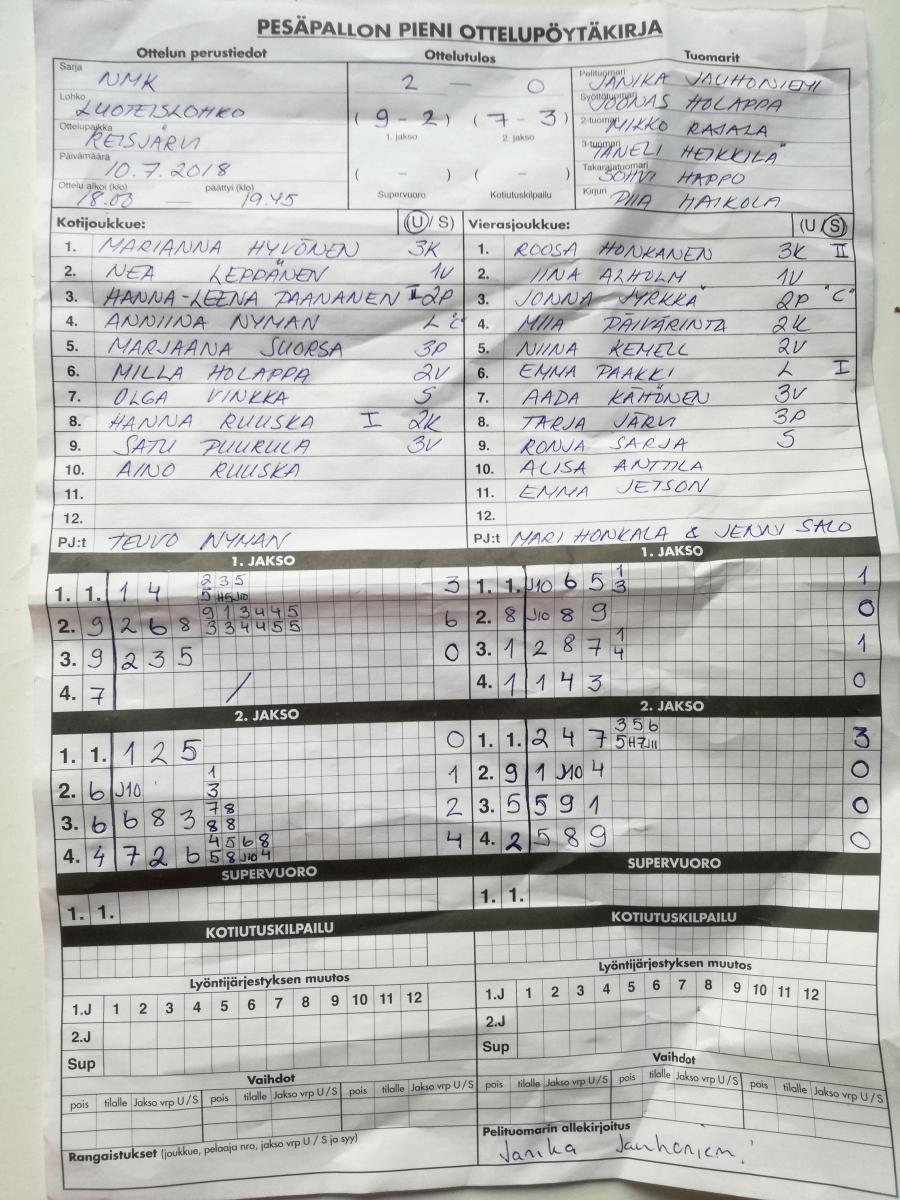 PESÄPALLON PIENI OTTELUPÖYTÄKIRJA
Ottelun perustiedot
Sarja
NMK
Lohko
LUOTEISLOHKO
Ottelupaikka
REISJÄRVI
Päivämäärä
10.7.2018
Ottelu alkoi (klo) päättyi (klo)
18.00 — 19.45
Ottelutulos
2 — 0
(9-2) (7-3)
1. jakso 2. jakso
( - ) ( - )
Supervuoro Kotiutuskilpailu
Tuomarit
Pelituomari JANIKA JAUHONIEMI
Syöttötuomari JOONAS HOLAPPA
2-tuomari MIKKO RAJALA
3-tuomari TANELI HEIKKILÄ
Takarajatuomari SOHVI HAPPO
Kirjuri PIIA HAIKOLA
Kotijoukkue: (U/S)
1. MARIANNA HYVÖNEN 3K
2. NEA LEPPÄNEN 1V
3. HANNA-LEENA PAANANEN II 2P
4. ANNIINA NYMAN L "C"
5. MARJAANA SUORSA 3P
6. MILLA HOLAPPA 2V
7. OLGA VINKKA S
8. HANNA RUUSKA I 2K
9. SATU PUURULA 3V
10. AINO RUUSKA
11.
12.
PJ:t TEUVO NYMAN
Vierasjoukkue: (U/S)
1. ROOSA HONKANEN 3K II
2. IINA ALHOLM 1V
3. JONNA JYRKKÄ 2P "C"
4. MIIA PÄIVÄRINTA 2K
5. NIINA KEMELL 2V
6. EMMA PAAKKI L I
7. AADA KÄHÖNEN 3V
8. TARJA JÄRVI 3P
9. RONJA SARJA S
10. ALISA ANTTILA
11. EMMA JETSON
12.
PJ:t MARI HONKALA & JENNI SALO
1. JAKSO
2 3 5
1. 1. 1 4 5 H5 J10 3
9 1 3 4 4 5
2. 9 2 6 8 3 3 4 4 5 5 6
3. 9 2 3 5 0
4. 7 /
1. JAKSO
1
1. 1. J10 6 5 3 1
2. 8 J10 8 9 0
1
3. 1 2 8 7 4 1
4. 1 1 4 3 0
2. JAKSO
1. 1. 1 2 5 0
1
2. 6 J10 3 1
7 8
3. 6 6 8 3 8 8 2
4 5 6 8
4. 4 7 2 6 5 8 J10 4 4
2. JAKSO
3 5 6
1. 1. 2 4 7 5 H7 J11 3
2. 9 1 J10 4 0
3. 5 5 9 1 0
4. 2 5 8 9 0
SUPERVUORO
1. 1.
SUPERVUORO
1. 1.
KOTIUTUSKILPAILU
KOTIUTUSKILPAILU
Lyöntijärjestyksen muutos
1.J 1 2 3 4 5 6 7 8 9 10 11 12
2.J
Sup
Lyöntijärjestyksen muutos
1.J 1 2 3 4 5 6 7 8 9 10 11 12
2.J
Sup
Vaihdot
pois tilalle Jakso vrp U/S pois tilalle Jakso vrp U/S pois tilalle Jakso vrp U/S
Vaihdot
pois tilalle Jakso vrp U/S pois tilalle Jakso vrp U/S pois tilalle Jakso vrp U/S
Rangaistukset (joukkue, pelaaja nro, jakso vrp U / S ja syy)
Pelituomarin allekirjoitus
Janika Jauhoniemi